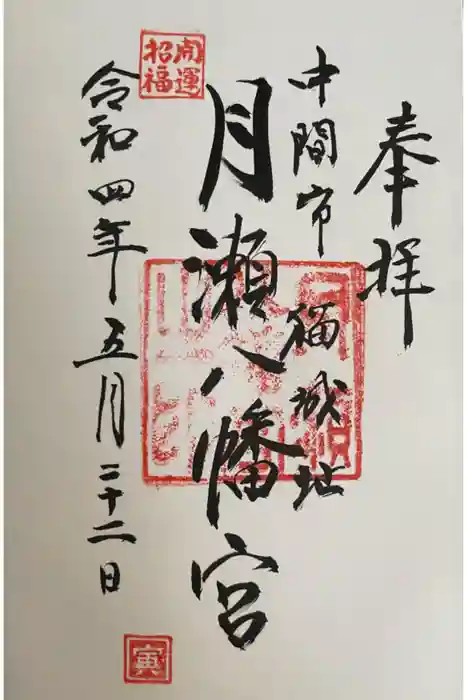 奉拝
中間市 猫城址
月瀬八幡宮
開運
招福
令和四年五月二十二日
寅